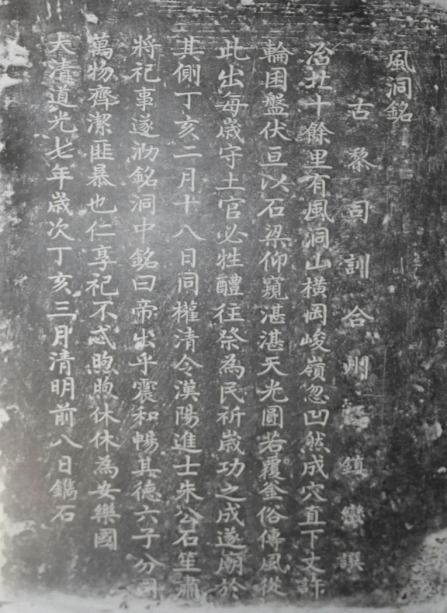 風洞銘
古黎司訓合州 鎮巒譔
治北十餘里有風洞山橫岡峻嶺忽凹然成穴直下丈許
輪囷盤伏亘以石梁仰窺湛湛天光圓若覆釜俗傳風從
此出每歲守土官必牲醴往祭為民祈歲功之成遂廟於
其側丁亥二月十八日同權清令漢陽進士朱公石笙肅
將祀事遂泐銘洞中銘曰帝出乎震和暢其德六子分司
萬物齊潔匪暴也仁享祀不忒煦煦休休為安樂國
大清道光七年歲次丁亥三月清明前八日鐫石